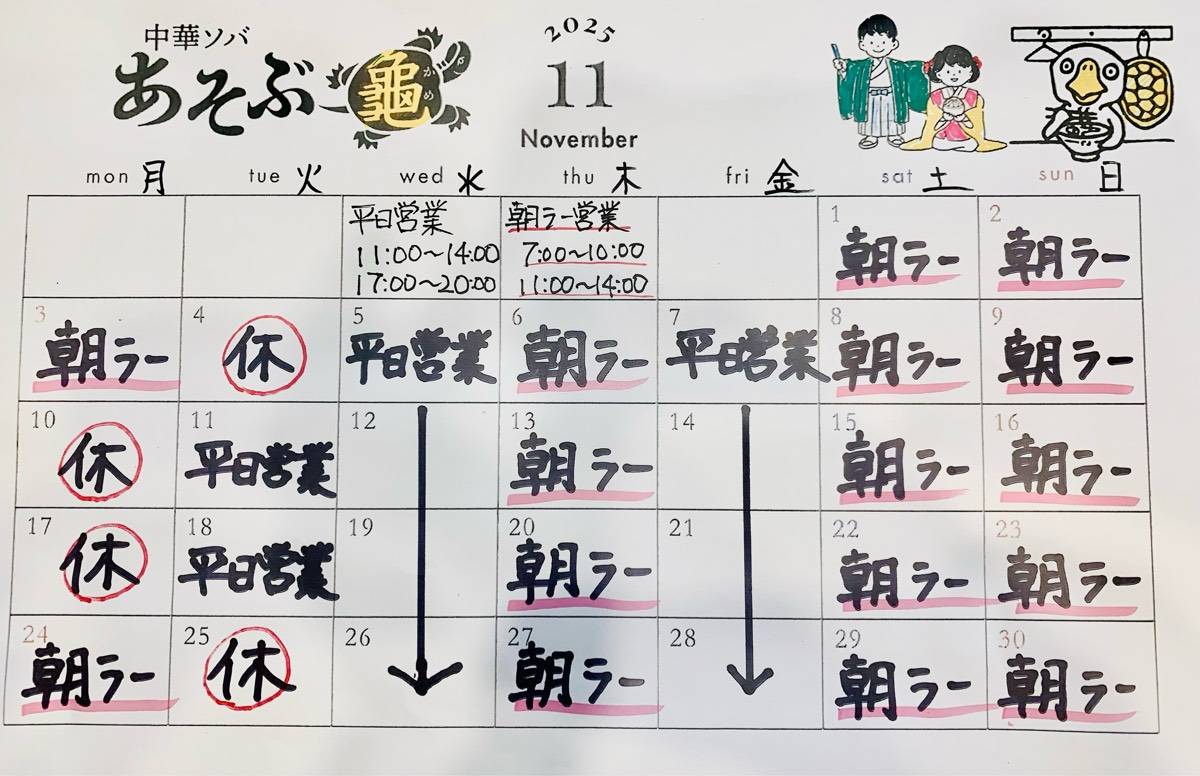 中華ソバ
あそぶ
龜
かめ
2025
11
November
mon 月 tue 火 wed 水 thu 木 fri 金 sat 土 sun 日
平日営業
11:00～14:00
17:00～20:00
朝ラー営業
7:00～10:00
11:00～14:00
1
朝ラー
2
朝ラー
3
朝ラー
4
休
5
平日営業
6
朝ラー
7
平日営業
8
朝ラー
9
朝ラー
10
休
11
平日営業
12
13
朝ラー
14
15
朝ラー
16
朝ラー
17
休
18
平日営業
19
20
朝ラー
21
22
朝ラー
23
朝ラー
24
朝ラー
25
休
26
27
朝ラー
28
29
朝ラー
30
朝ラー